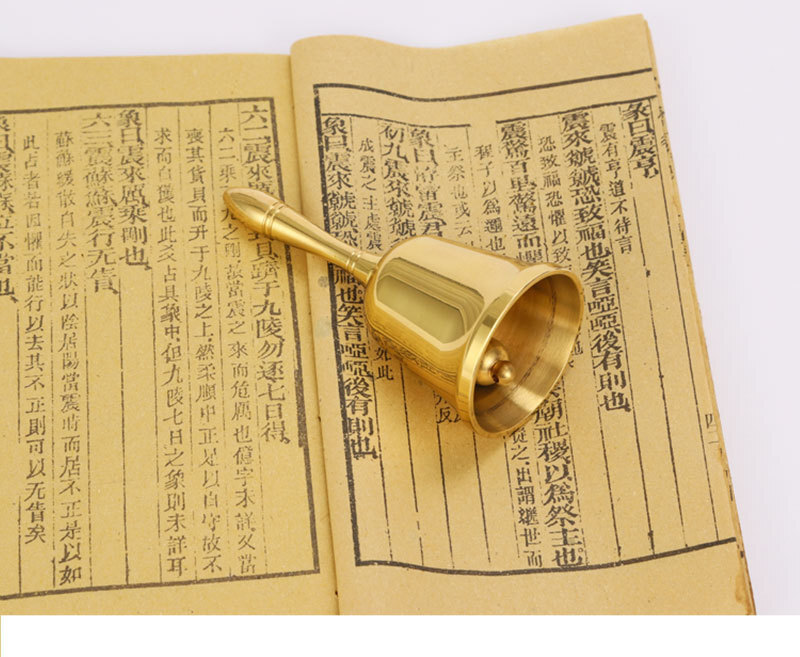 彖曰震亨
震有亨道不待言
震來虩虩恐致福也笑言啞啞後有則也
恐致福恐懼以致
震驚百里驚遠而懼廟社稷以為祭主也
程子以為邇也從之出謂繼世而
主祭也或云
象曰洊雷震君
初九震來虩虩
成震之主處震如此
象曰震來虩虩恐致福也笑言啞啞後有則也
六二震來厲貝躋于九陵勿逐七日得
六二乘九之剛故當震之來而危厲也億字未詳又當
喪其貨貝而升于九陵之上然柔順中正足以自守故不
求而自獲也此爻占具象中但九陵七日之象則未詳耳
象曰震來厲乘剛也
六三震蘇蘇震行无眚
蘇蘇緩散自失之狀以陰居陽當震時而居不正是以如
此占者若因懼而能行以去其不正則可以无眚矣
象曰震蘇蘇位不當也